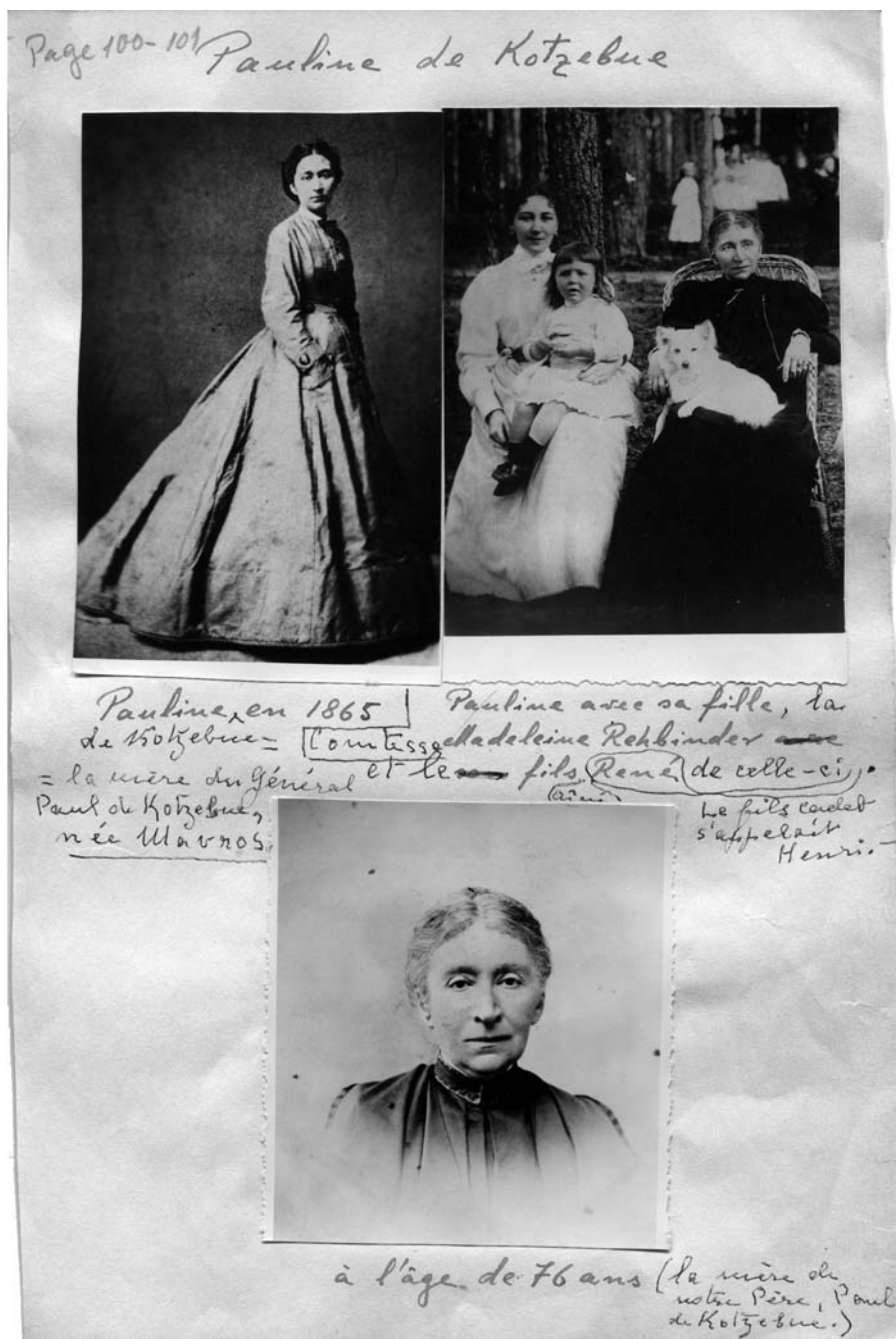 Page 100-101
Pauline de Kotzebue
Pauline, en 1865
de Kotzebue =
= la mère du Général
Paul de Kotzebue,
née Mavros.
Pauline avec sa fille, la
Comtesse Madeleine Rehbinder
et le fils René de celle-ci.
(aîné)
Le fils cadet
s'appelait
Henri.-
à l'âge de 76 ans (la mère de
notre Père, Paul
de Kotzebue.)